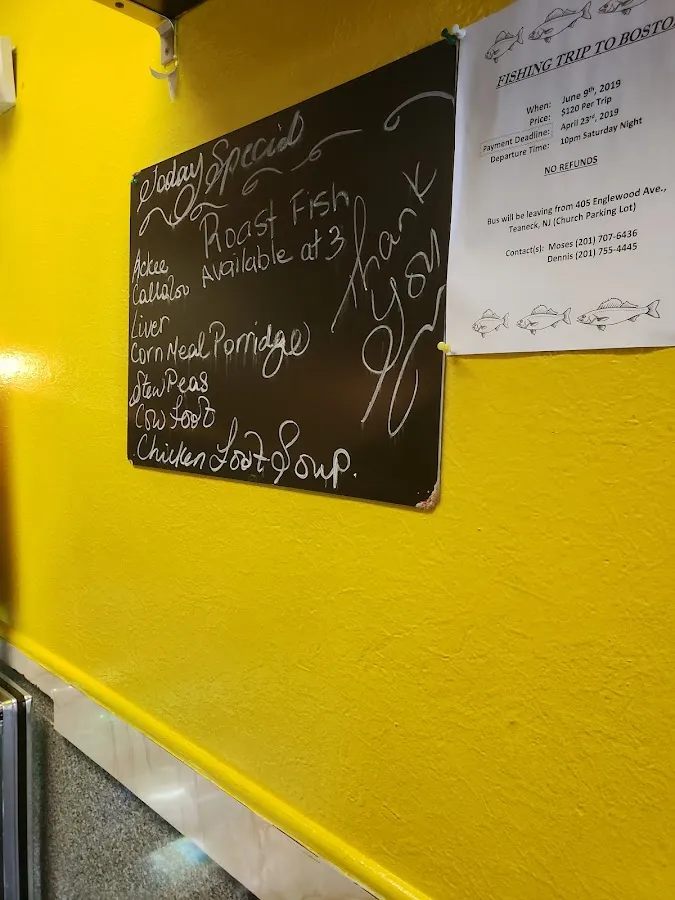 Today Special
Roast Fish
Available at 3
Ackee
Callaloo
Liver
Corn Meal Porridge
Stew Peas
Cow Foot
Chicken Foot Soup.
Thank
you
FISHING TRIP TO BOSTO
When: June 9th, 2019
Price: $120 Per Trip
Payment Deadline: April 23rd, 2019
Departure Time: 10pm Saturday Night
NO REFUNDS
Bus will be leaving from 405 Englewood Ave.,
Teaneck, NJ (Church Parking Lot)
Contact(s): Moses (201) 707-6436
Dennis (201) 755-4445